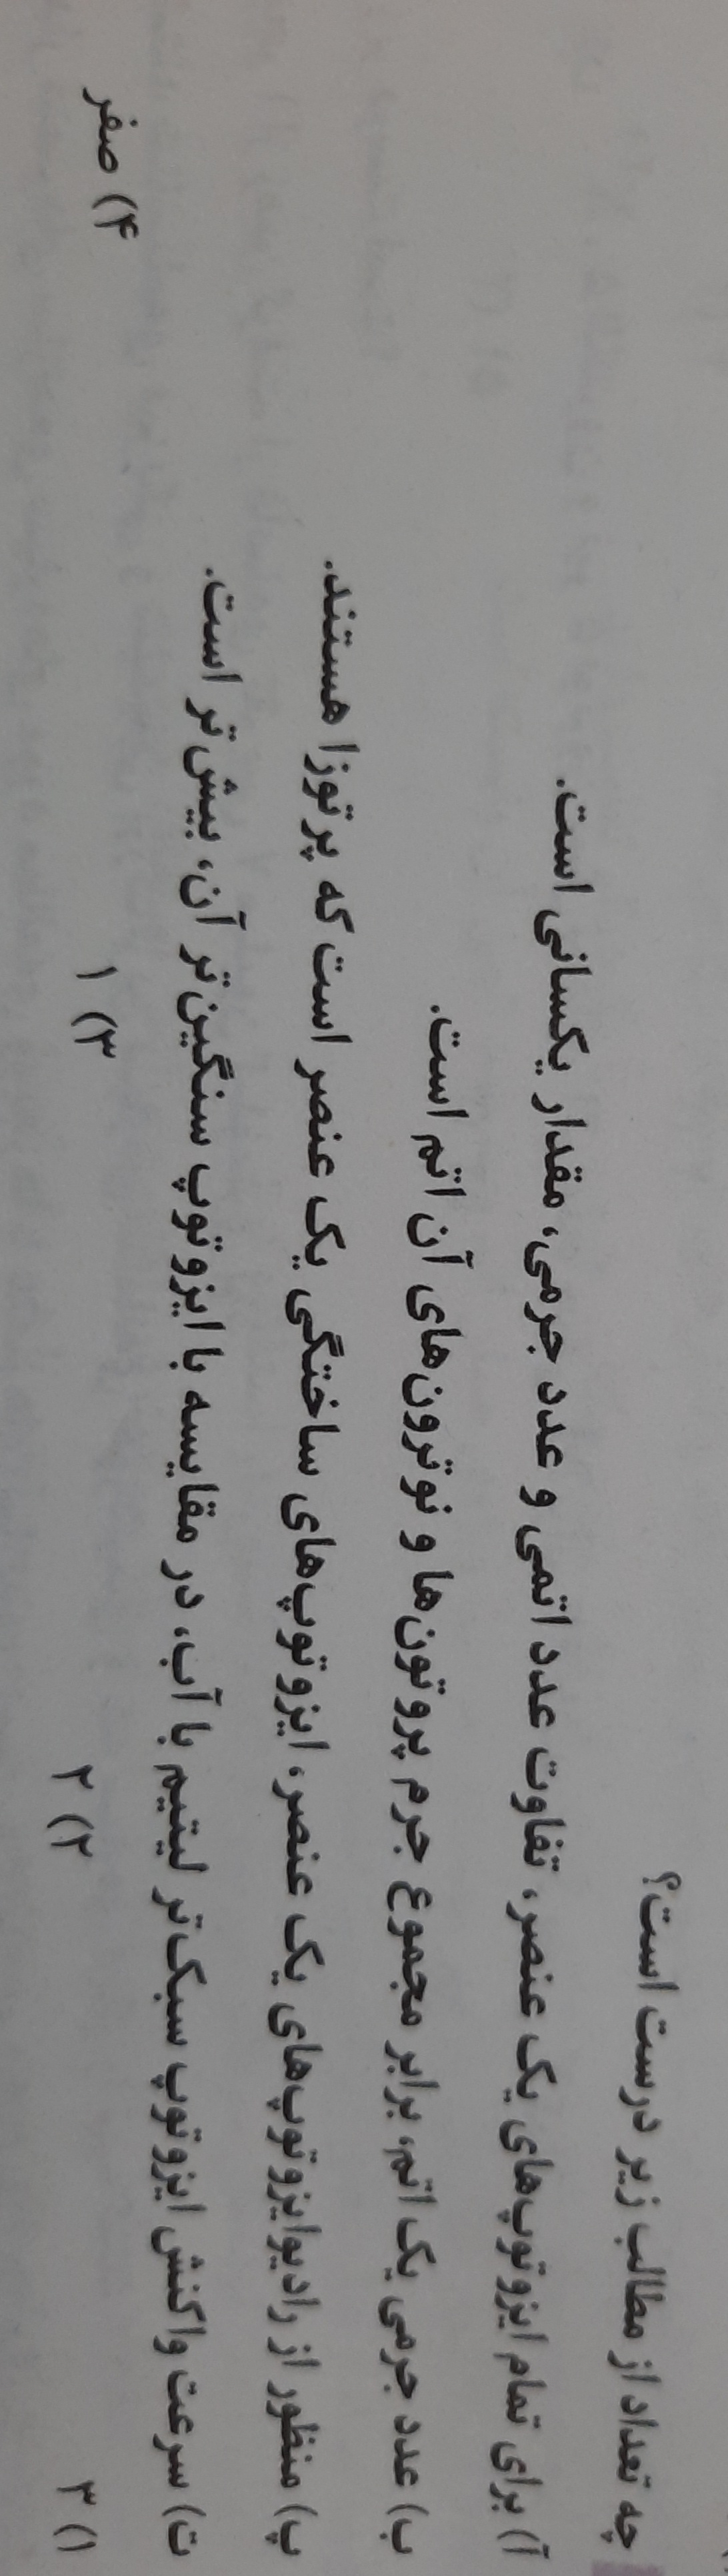 چه تعداد از مطالب زیر درست است؟
آ) برای تمام ایزوتوپ‌های یک عنصر، تفاوت عدد اتمی و عدد جرمی، مقدار یکسانی است.
ب) عدد جرمی یک اتم، برابر مجموع جرم پروتون‌ها و نوترون‌های آن اتم است.
پ) منظور از رادیوایزوتوپ‌های یک عنصر، ایزوتوپ‌های ساختگی یک عنصر است که پرتوزا هستند.
ت) سرعت واکنش ایزوتوپ سبک‌تر لیتیم با آب، در مقایسه با ایزوتوپ سنگین‌تر آن، بیش‌تر است.
۱) ۳ ۲) ۲ ۳) ۱ ۴) صفر